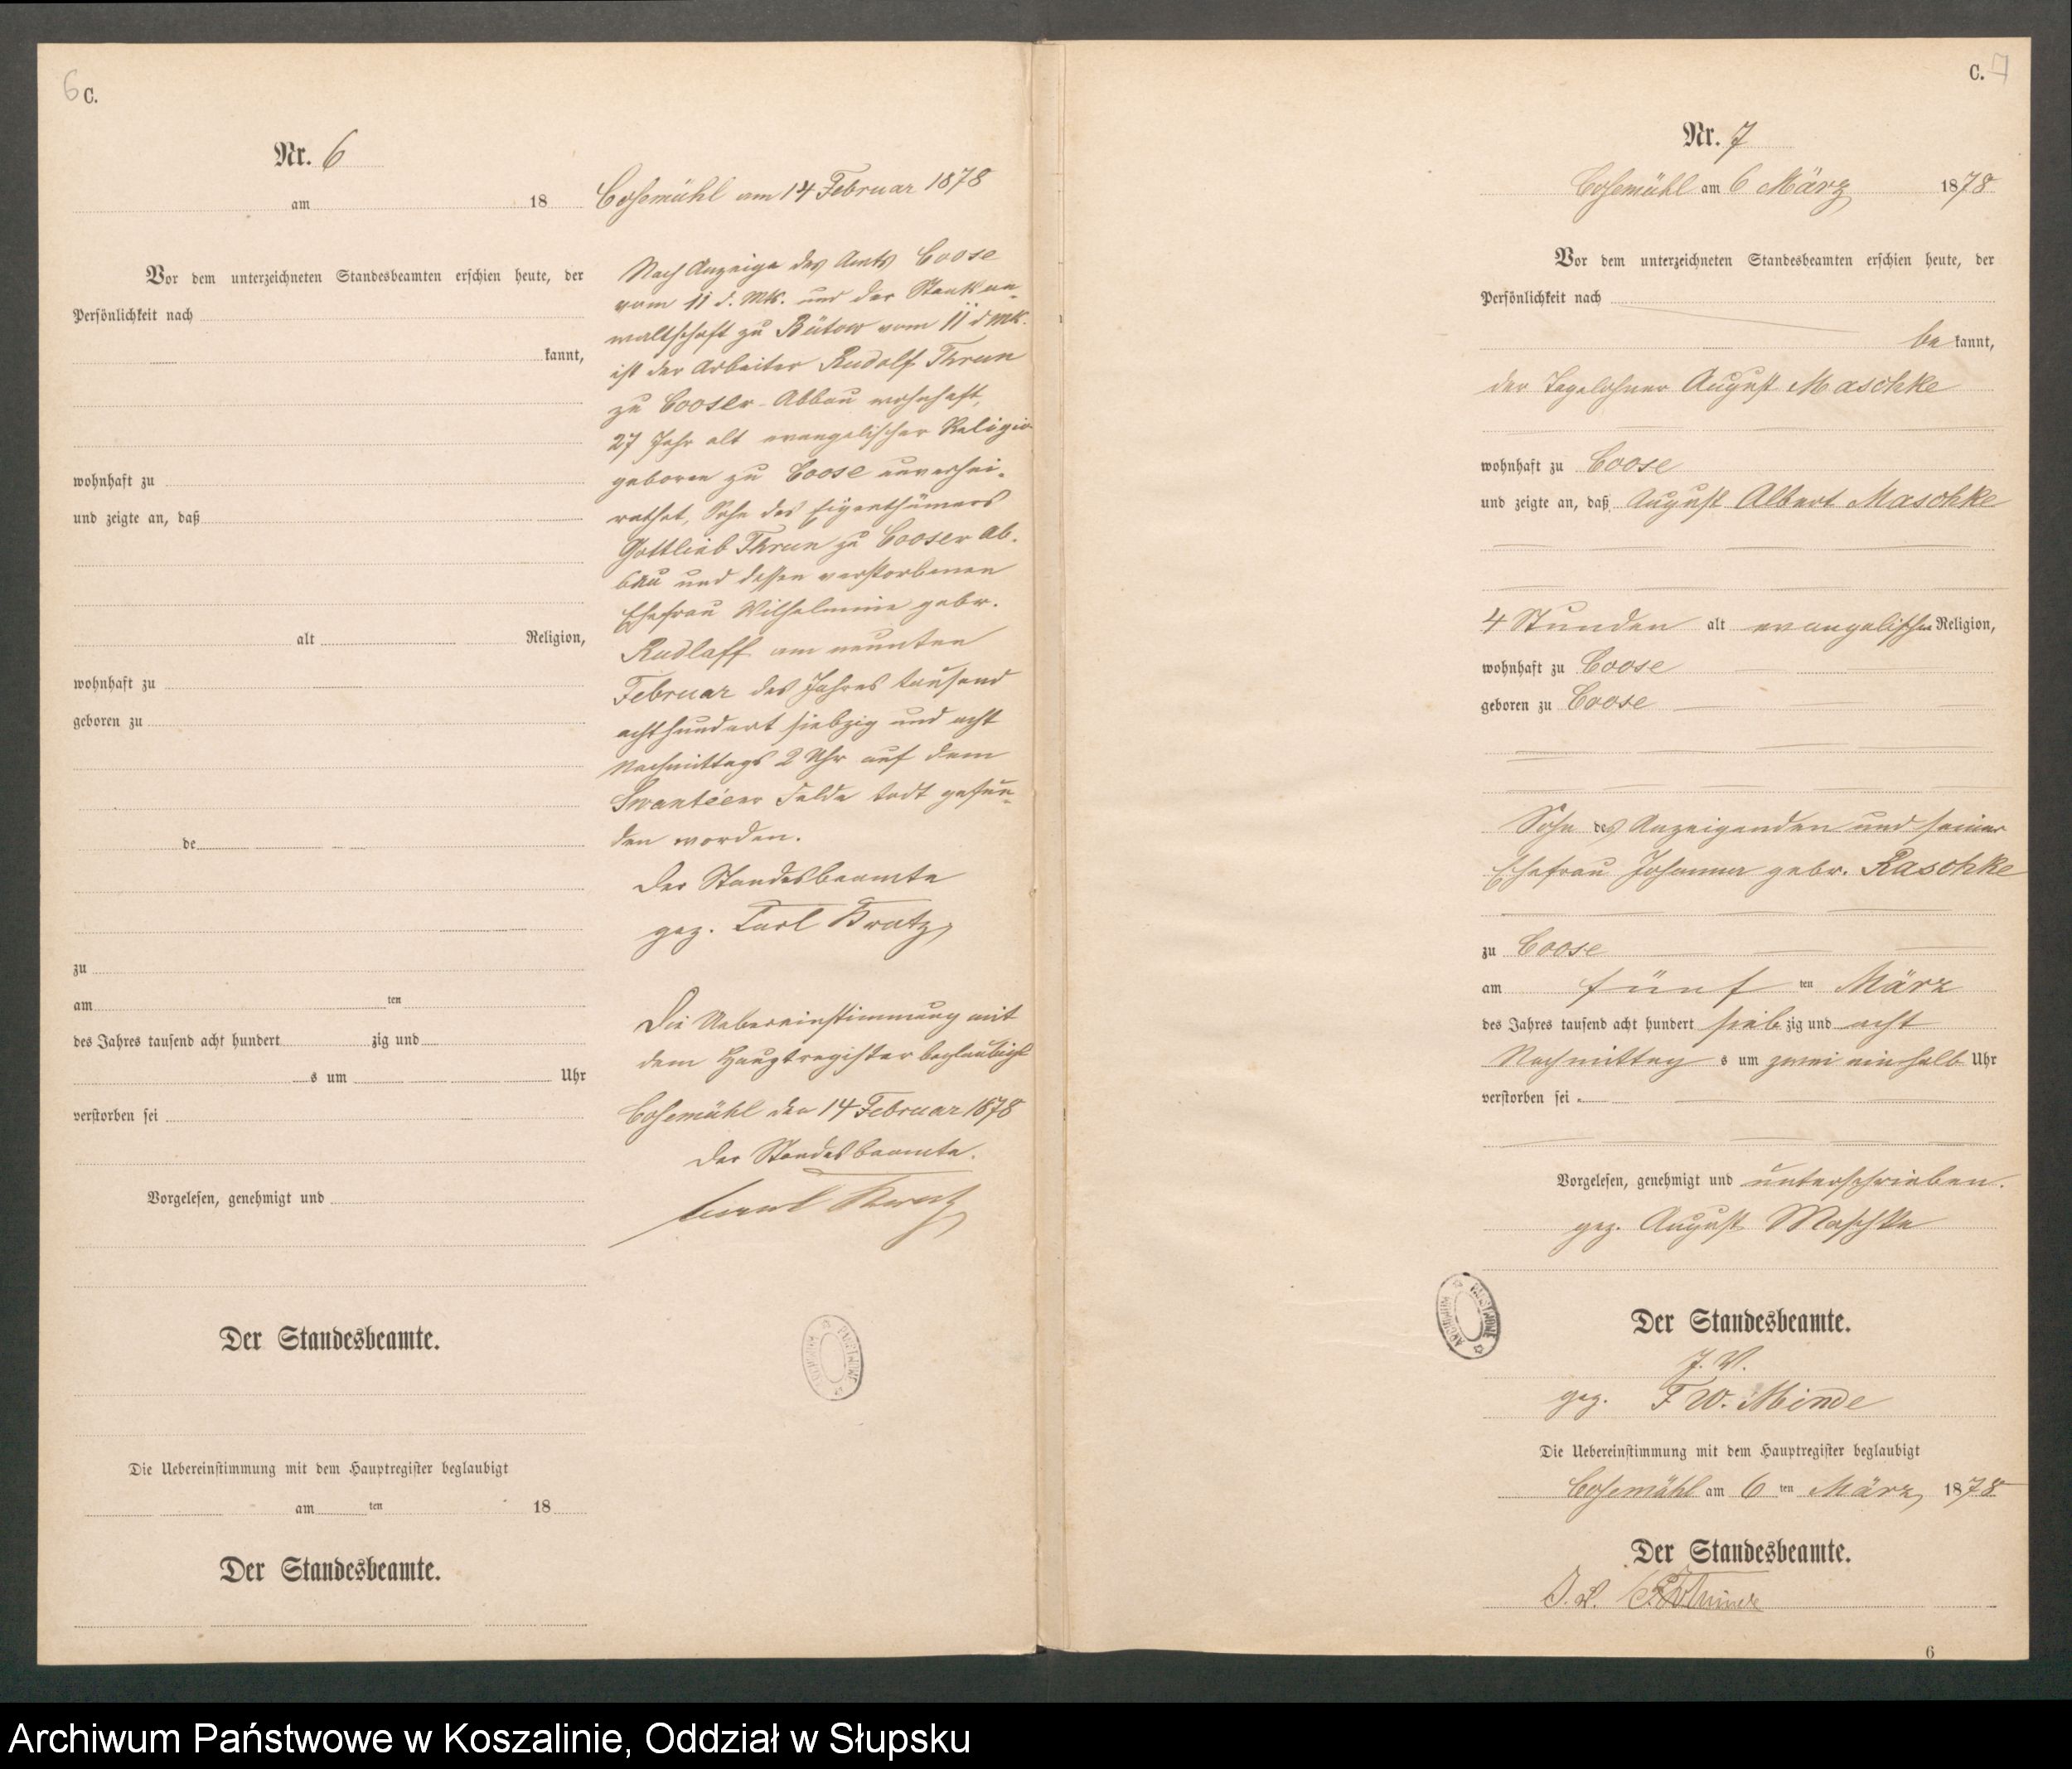 6 C.
Nr. 6
am 18
Cosemühl am 14 Februar 1878
Vor dem unterzeichneten Standesbeamten erschien heute, der
Persönlichkeit nach
kannt,
wohnhaft zu
und zeigte an, daß
alt Religion,
wohnhaft zu
geboren zu
de
zu
am ten
des Jahres tausend acht hundert zig und
s um Uhr
verstorben sei
Vorgelesen, genehmigt und
Der Standesbeamte.
Die Uebereinstimmung mit dem Hauptregister beglaubigt
am ten 18
Der Standesbeamte.
Nach Anzeige des Amts Coose
vom 11 d. Mts. und der Staatsan-
waltschaft zu Bütow vom 11 d Mts.
ist der Arbeiter Rudolf Thrun
zu Cooser-Abbau wohnhaft,
27 Jahr alt evangelischer Religion
geboren zu Coose unverhei-
rathet, Sohn des Eigenthümers
Gottlieb Thrun zu Cooser Ab-
bau und dessen verstorbenen
Ehefrau Wilhelmine gebr.
Rudlaff am neunten
Februar des Jahres tausend
achthundert siebzig und acht
Nachmittags 2 Uhr auf dem
Felde todt gefun-
den worden.
Der Standesbeamte
gez. Carl Kratz
Die Uebereinstimmung mit
dem Hauptregister beglaubigt
Cosemühl den 14 Februar 1878
Der Standesbeamte.
Carl Kratz
ARCHIWUM PAŃSTWOWE
C. 7
Nr. 7
Cosemühl am 6 März 1878
Vor dem unterzeichneten Standesbeamten erschien heute, der
Persönlichkeit nach
be kannt,
der Tagelöhner August Maschke
wohnhaft zu Coose
und zeigte an, daß August Albert Maschke
4 Stunden alt evangelischer Religion,
wohnhaft zu Coose
geboren zu Coose
Sohn des Anzeigenden und seiner
Ehefrau Johanna gebr. Raschke
zu Coose
am fünf ten März
des Jahres tausend acht hundert sieb zig und acht
Nachmittag s um zwei einhalb Uhr
verstorben sei
Vorgelesen, genehmigt und unterschrieben.
gez. August Maschke
ARCHIWUM PAŃSTWOWE
Der Standesbeamte.
J. V.
gez. F W. Minde
Die Uebereinstimmung mit dem Hauptregister beglaubigt
Cosemühl am 6 ten März 1878
Der Standesbeamte.
J. V. F W Minde
6
Archiwum Państwowe w Koszalinie, Oddział w Słupsku